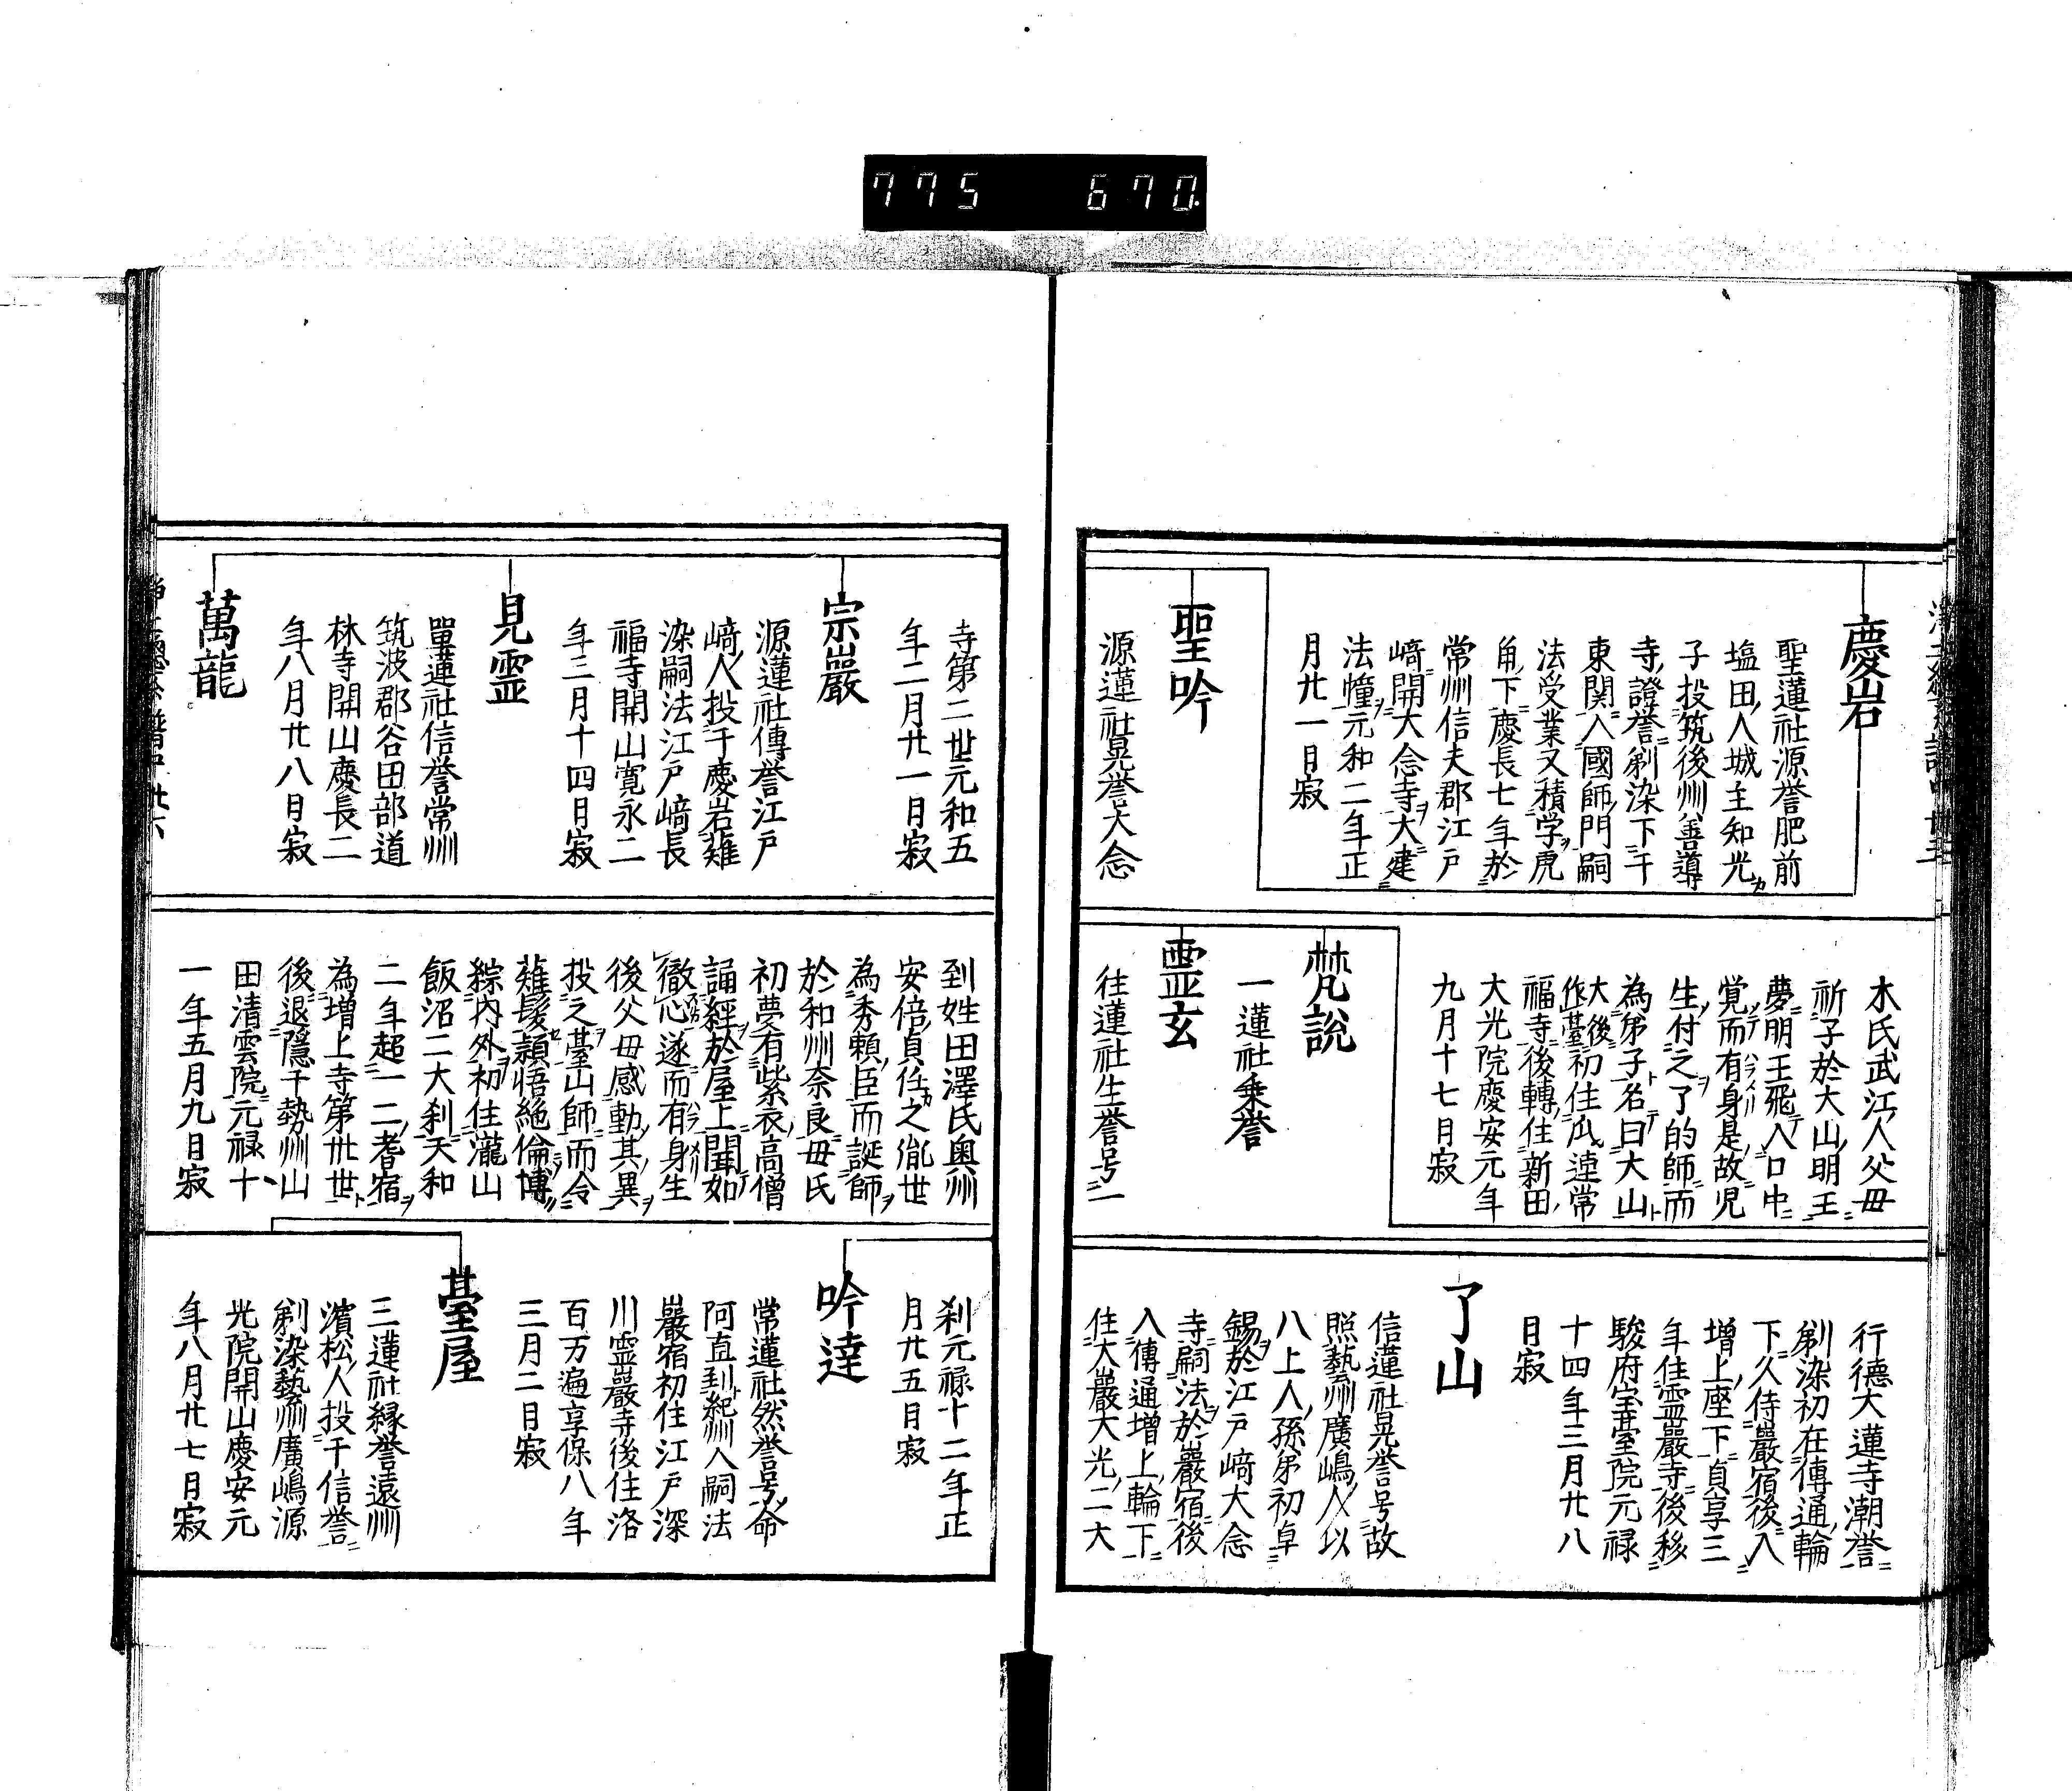 775 670.
慶岩
聖蓮社源誉肥前
塩田ノ人城主知光カ
子投筑後州善導
寺證誉剃染下于
東関入國師ノ門嗣
法受業又積学虎
角ノ下慶長七年於
常州信夫郡江戸
﨑開大念寺大建
法幢元和二年正
月廿一日寂
聖吟
源蓮社晃誉大念
木氏武江ノ人父母
祈子於大山ノ明王
夢明王飛入口中
覚而有身是故児
生付之了的師而
為弟子名曰大山
大後作臺初住瓜連常
福寺後轉住新田
大光院慶安元年
九月十七日寂
梵說
一蓮社乗誉
霊玄
往蓮社生誉号一
行德大蓮寺潮誉
剃染初在傳通輪
下久侍巖宿後入
増上座下貞享三
年住霊巖寺後移
駿府宝臺院元禄
十四年三月廿八
日寂
了山
信蓮社晃誉号故
照藝州廣嶋ノ人以
八上人ノ孫弟初卓
錫於江戸﨑大念
寺嗣法於巖宿後
入傳通增上ノ輪下
住大巖大光ノ二大
寺第二世元和五
年二月廿一日寂
宗巖
源蓮社傳誉江戸
﨑ノ人投于慶岩薙
染嗣法江戸﨑長
福寺開山寛永二
年三月十四日寂
見霊
單蓮社信誉常州
筑波郡谷田部道
林寺開山慶長二
年八月廿八日寂
萬龍
到姓田澤氏奥州
安倍ノ貞任之胤世
為秀頼ノ臣而誕師
於和州奈良母氏
初夢有紫衣高僧
誦經於屋上聞如
徹心遂而有身生
後父母感動其異
投之臺山師而令
薙髪頴悟絶倫博
綜内外初住瀧山
飯沼二大刹天和
二年超一二耆宿
為増上寺第卅世
後退隱于勢州山
田清雲院元禄十
一年五月九日寂
刹元禄十二年正
月廿五日寂
吟達
常蓮社然誉号命
阿直到紀州人嗣法
巖宿初住江戸深
川霊巖寺後住洛
百万遍享保八年
三月二日寂
臺屋
三蓮社縁誉遠州
濱松ノ人投于信誉
剃染藝州廣嶋源
光院開山慶安元
年八月廿七日寂